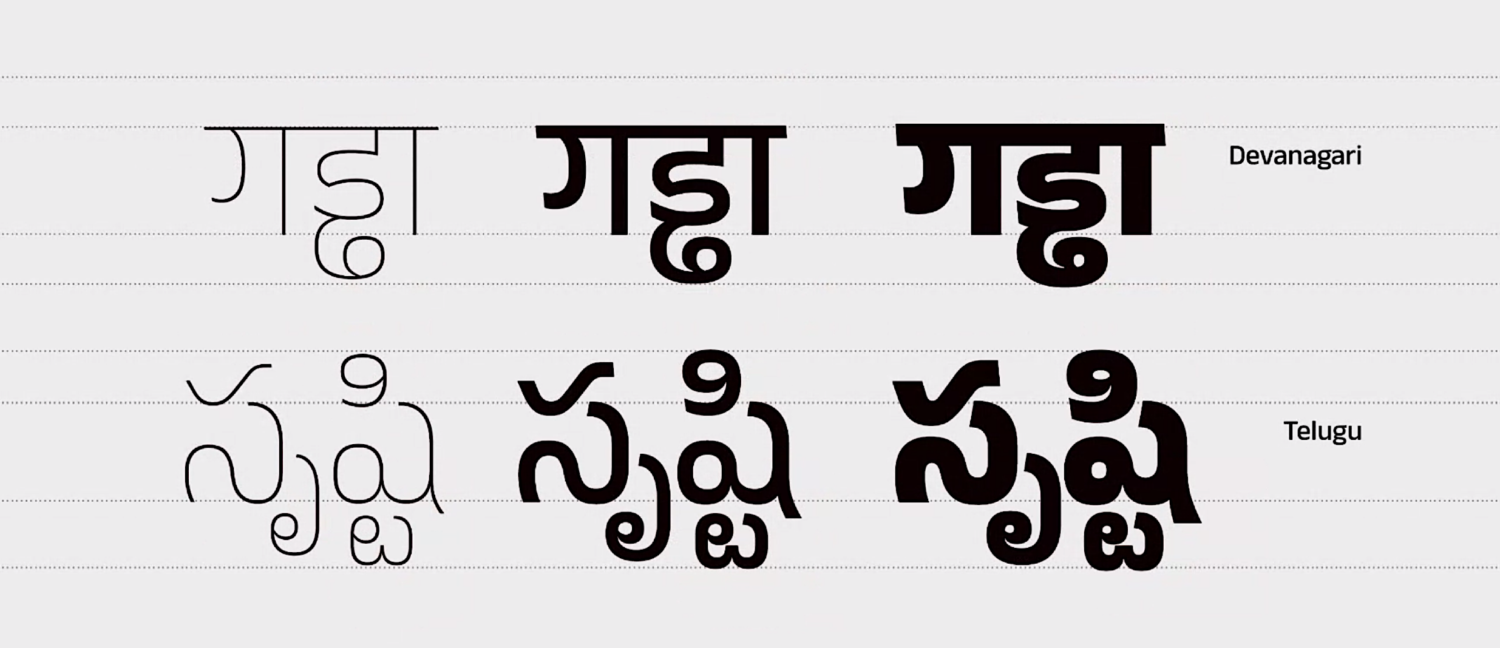 गड्ढा गड्ढा गड्ढा Devanagari
సృష్టి సృష్టి సృష్టి Telugu